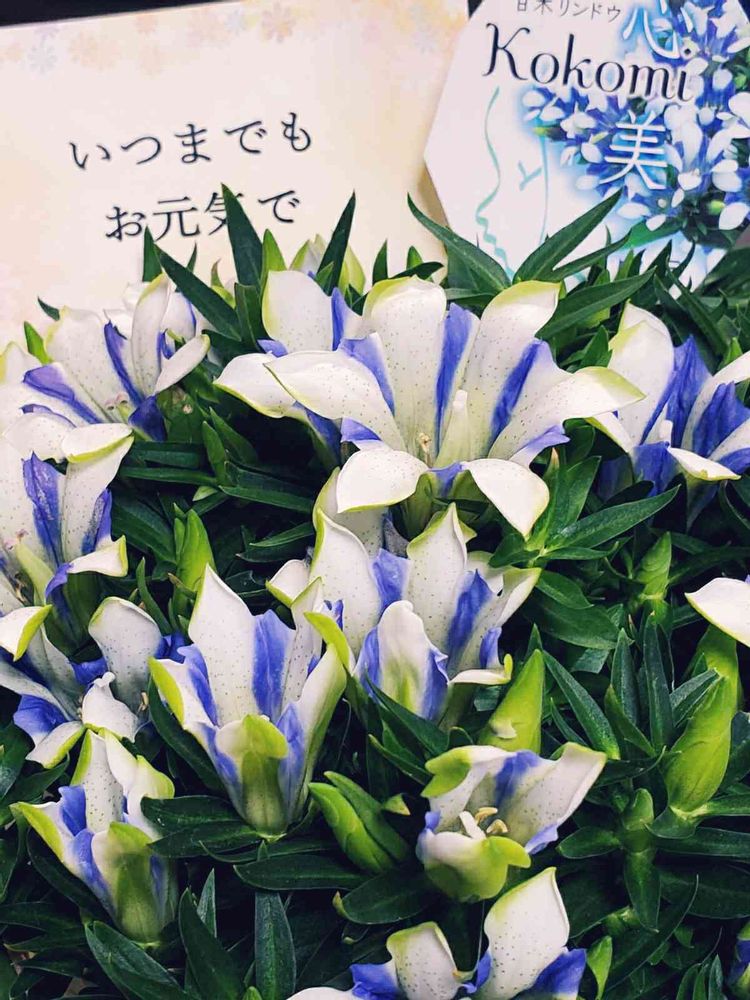 いつまでも
お元気で
日本リンドウ
心
Kokomi
美